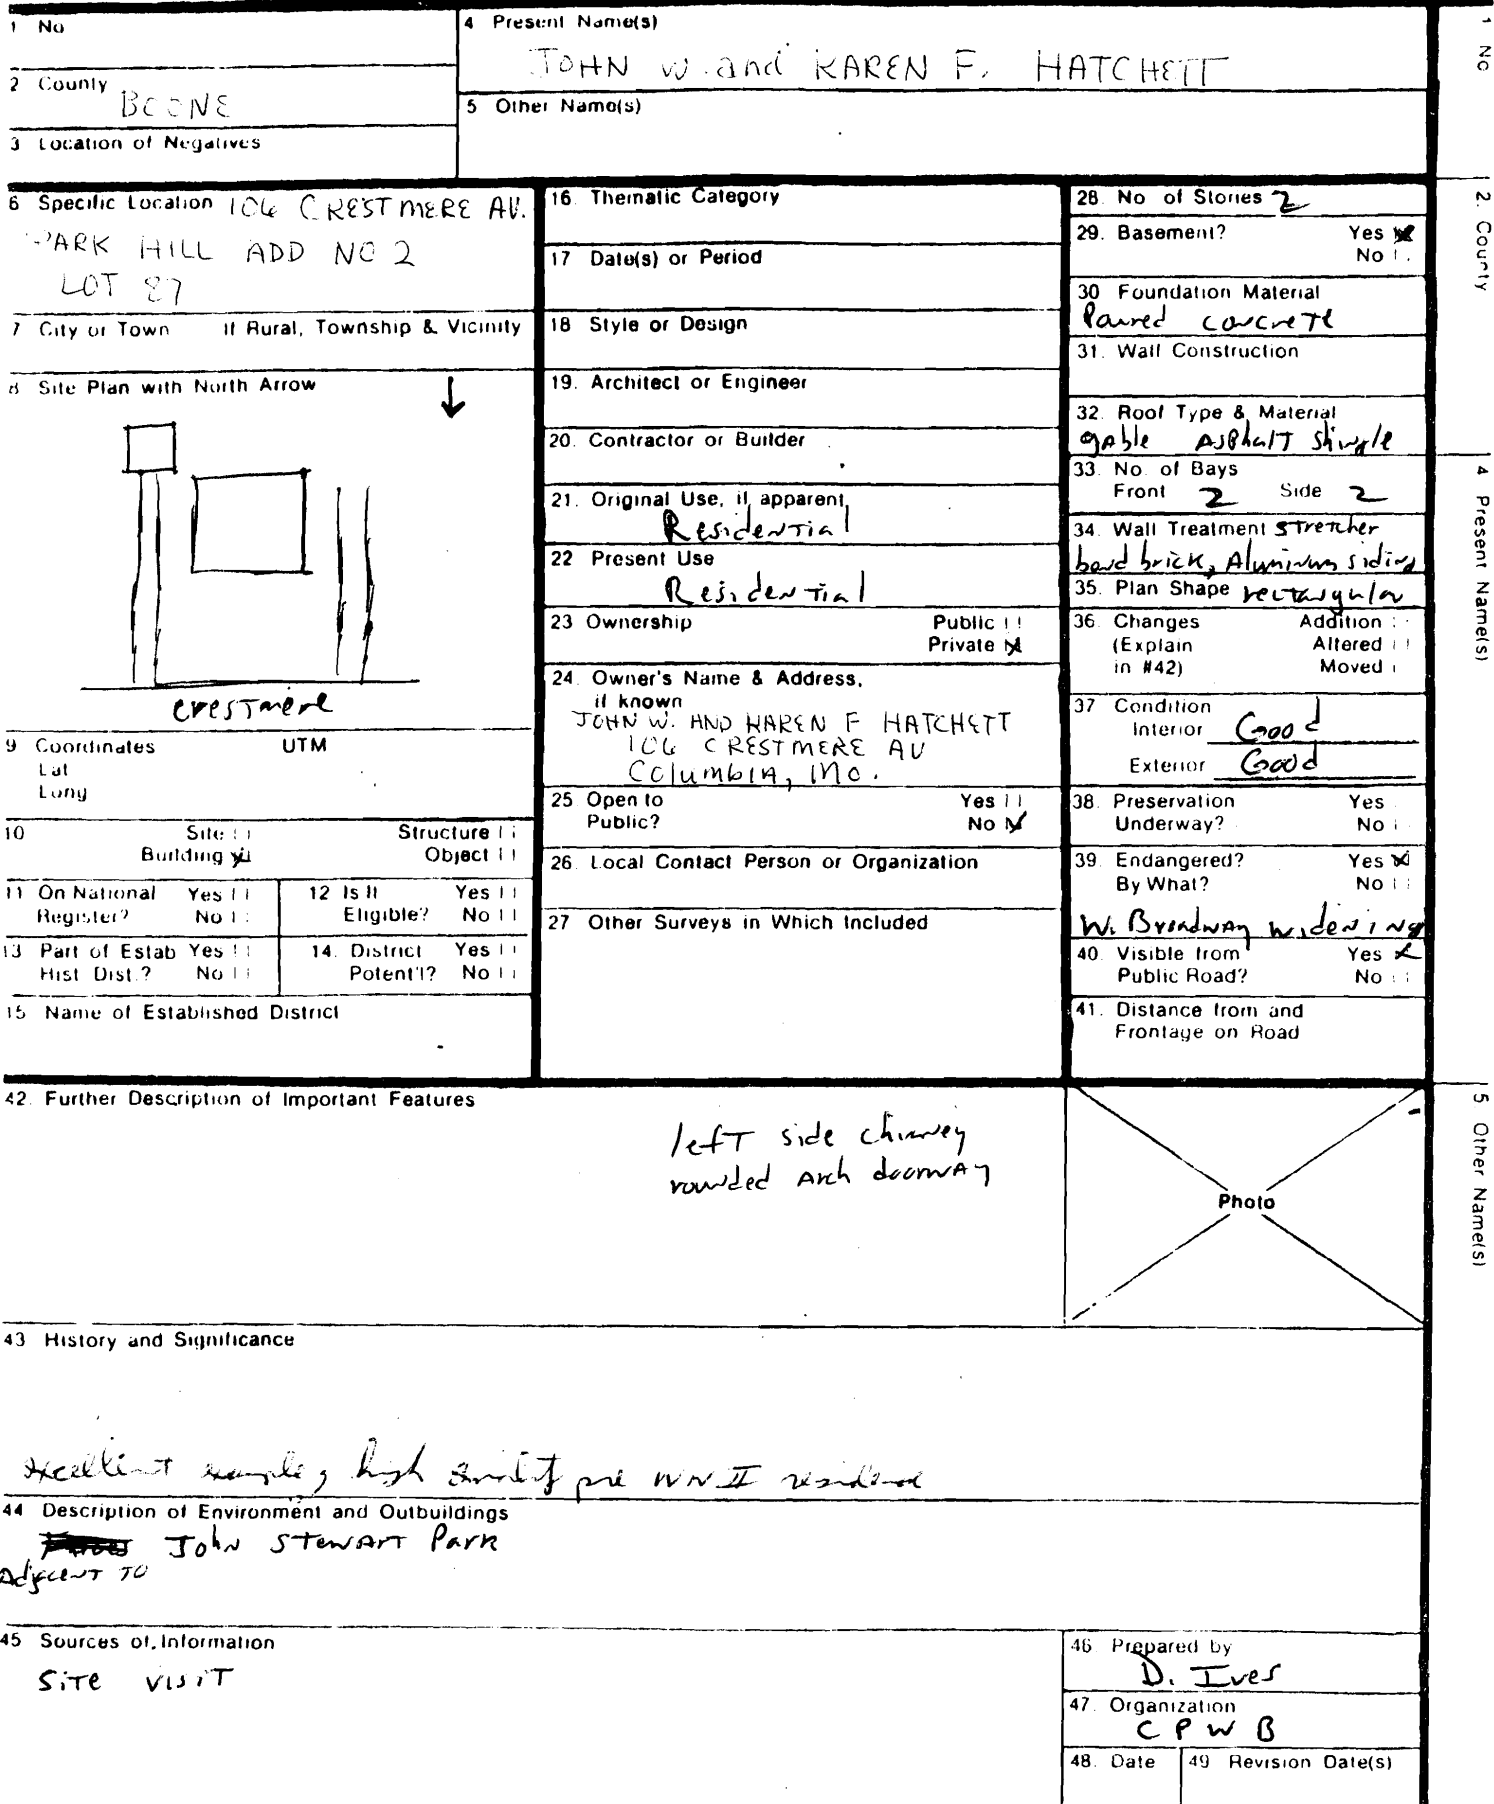 1 No
4 Present Name(s)
JOHN W. and KAREN F. HATCHETT
2 County
BOONE
5 Other Name(s)
3 Location of Negatives
6 Specific Location 106 CRESTMERE AV.
PARK HILL ADD NO 2
LOT 87
7 City or Town If Rural, Township & Vicinity
8 Site Plan with North Arrow
crestmere
9 Coordinates UTM
Lat
Long
10 Site Structure
Building Object
11 On National Register? Yes No
12 Is It Eligible? Yes No
13 Part of Estab Hist Dist.? Yes No
14. District Potent'l? Yes No
15 Name of Established District
16. Thematic Category
17 Date(s) or Period
18 Style or Design
19. Architect or Engineer
20. Contractor or Builder
21. Original Use, if apparent
Residential
22 Present Use
Residential
23 Ownership Public
Private
24. Owner's Name & Address,
if known
JOHN W. AND KAREN F HATCHETT
106 CRESTMERE AV
Columbia, Mo.
25 Open to Yes
Public? No
26. Local Contact Person or Organization
27 Other Surveys in Which Included
28. No of Stories 2
29. Basement? Yes
No
30 Foundation Material
Poured concrete
31. Wall Construction
32. Roof Type & Material
gable Asphalt shingle
33. No. of Bays
Front 2 Side 2
34. Wall Treatment stretcher
bond brick, Aluminum siding
35. Plan Shape rectangular
36. Changes Addition
(Explain Altered
in #42) Moved
37 Condition
Interior Good
Exterior Good
38. Preservation Yes
Underway? No
39. Endangered? Yes
By What? No
W. Broadway widening
40. Visible from Yes
Public Road? No
41. Distance from and
Frontage on Road
42. Further Description of Important Features
left side chimney
rounded Arch doorway
Photo
43 History and Significance
excellent example, high pre WW II residence
44 Description of Environment and Outbuildings
John Stewart Park
Adjacent to
45 Sources of Information
Site visit
46. Prepared by
D. Ives
47. Organization
CPWB
48. Date
49 Revision Date(s)
1 No
2. County
4 Present Name(s)
5 Other Name(s)